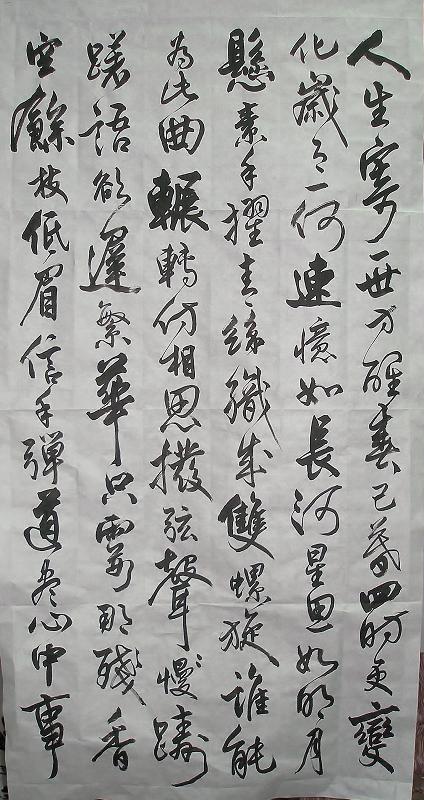 人生寄一世方醒春已暮四时更變
化歲之一何速憶如長河星思如明月
懸素手擢青絲織成雙螺旋誰能
為此曲輾轉仿相思撥弦聲慢踌
躇語欲遲繁華只剎那殘香
空餘枝低眉信手彈道盡心中事